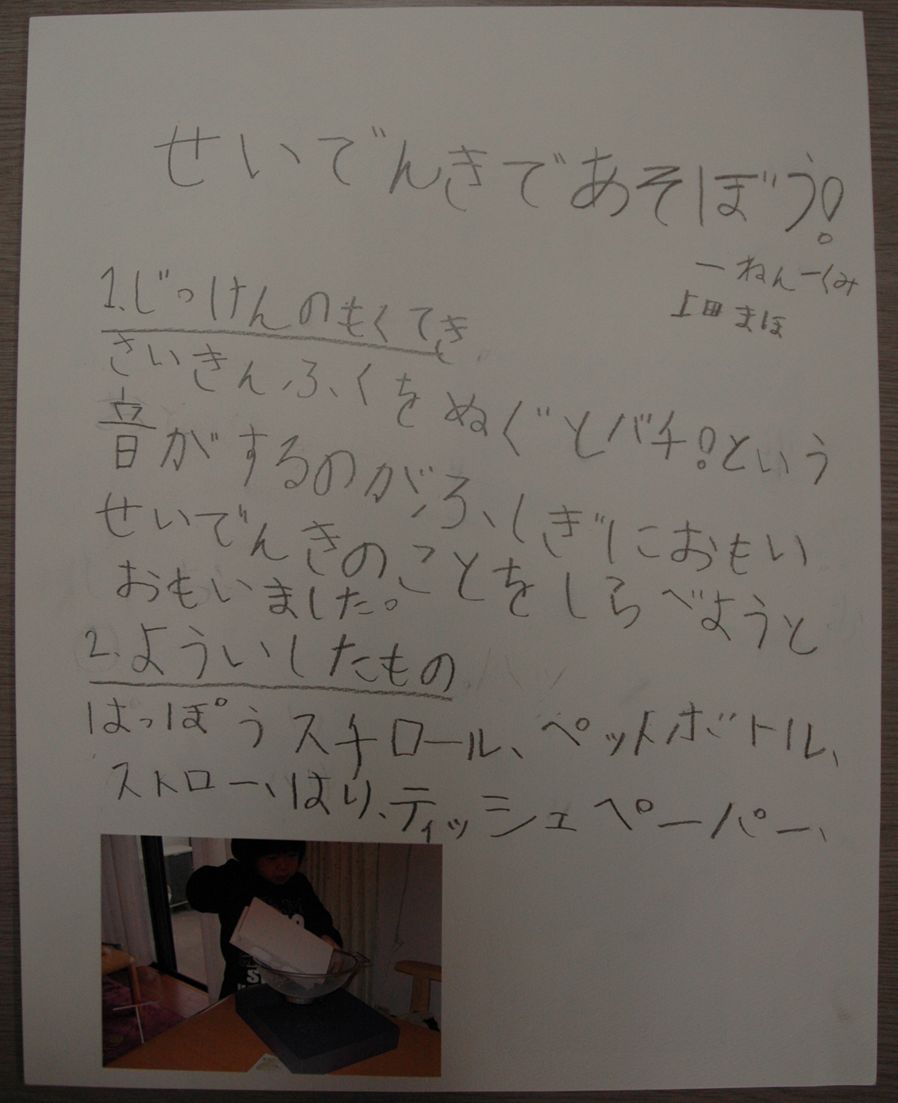 せいでんきであそぼう!
一ねん一くみ
上田まほ
1.じっけんのもくてき
さいきんふくをぬぐとバチ!という
音がするのがふしぎにおもい
せいでんきのことをしらべようと
おもいました。
2.よういしたもの
はっぽうスチロール、ペットボトル、
ストロー、はり、ティッシュペーパー、